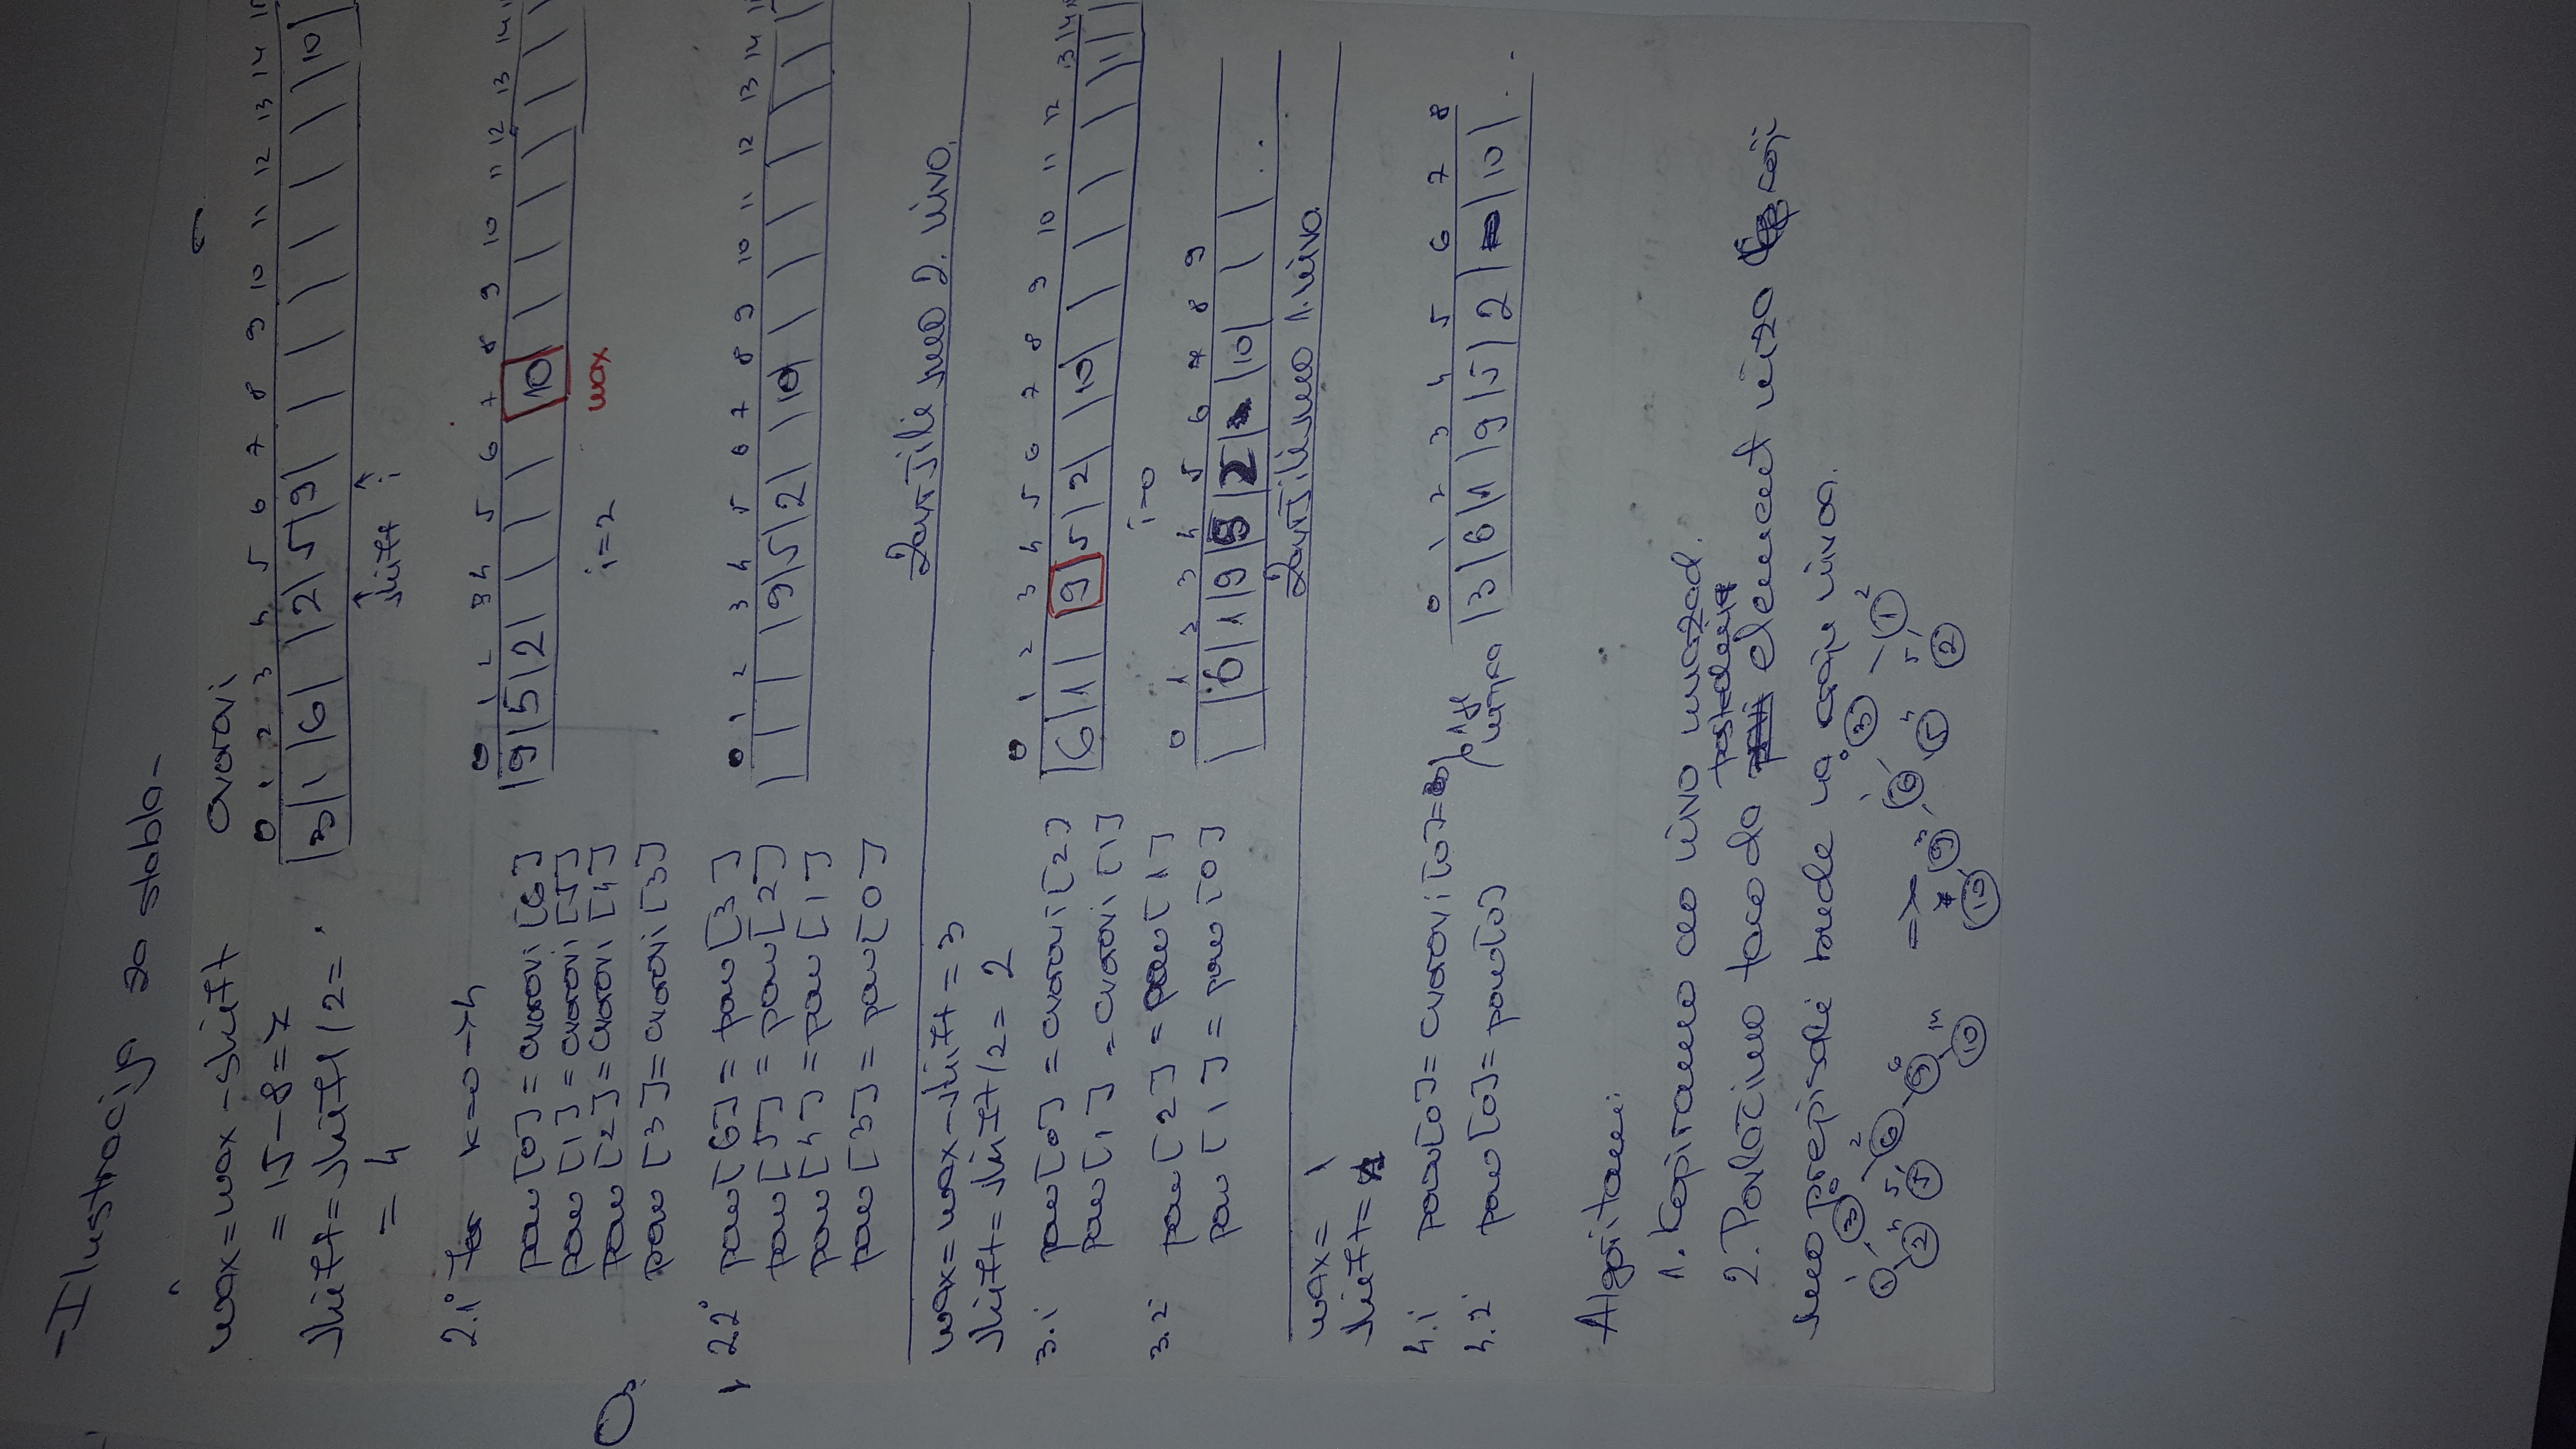 -Ilustracija za stablo-
max = max - shift
= 15-8=7
shift = shift/2=
= 4
cvorovi
0 1 2 3 4 5 6 7 8 9 10 11 12 13 14 15
|3|1|6| |2|5|9| | | | | | | |10|
shift i
2.1° for k=0→4
pom[0]=cvorovi[6]
pom[1]=cvorovi[5]
pom[2]=cvorovi[4]
pom[3]=cvorovi[3]
0 1 2 3 4 5 6 7 8 9 10 11 12 13 14
|9|5|2| | | | |10| | | | | | |
i=2 max
2.2° pom[6] = pom[3]
pom[5] = pom[2]
pom[4] = pom[1]
pom[3] = pom[0]
0 1 2 3 4 5 6 7 8 9 10 11 12 13 14
| | | |9|5|2| |10| | | | | | |
Završili smo 2. nivo.
max = max-shift = 3
shift = shift/2 = 2
3.1 pom[0] = cvorovi[2]
pom[1] = cvorovi[1]
0 1 2 3 4 5 6 7 8 9 10 11 12 13 14
|6|1| |9|5|2| |10| | | | | |
i=0
3.2 pom[2] = pom[1]
pom[1] = pom[0]
0 1 2 3 4 5 6 7 8 9
| |6|1|9|5|2| |10| | | ..
Završili smo 1. nivo.
max = 1
shift = 1
4.1 pom[0]=cvorovi[0]=3
4.2 pom[0]=pom[0]
0 1 2 3 4 5 6 7 8
|3|6|1|9|5|2| |10| ..
Algoritam:
1. Kopiramo ceo nivo unazad.
2. Povlačimo tako da poslednji element niza koji
smo prepisali bude na kraju nivoa.
0 3 1 1 2 6 2 5 5 6 9 14 10
=>
0 3 1 6 2 1 3 9 4 5 5 2 7 10